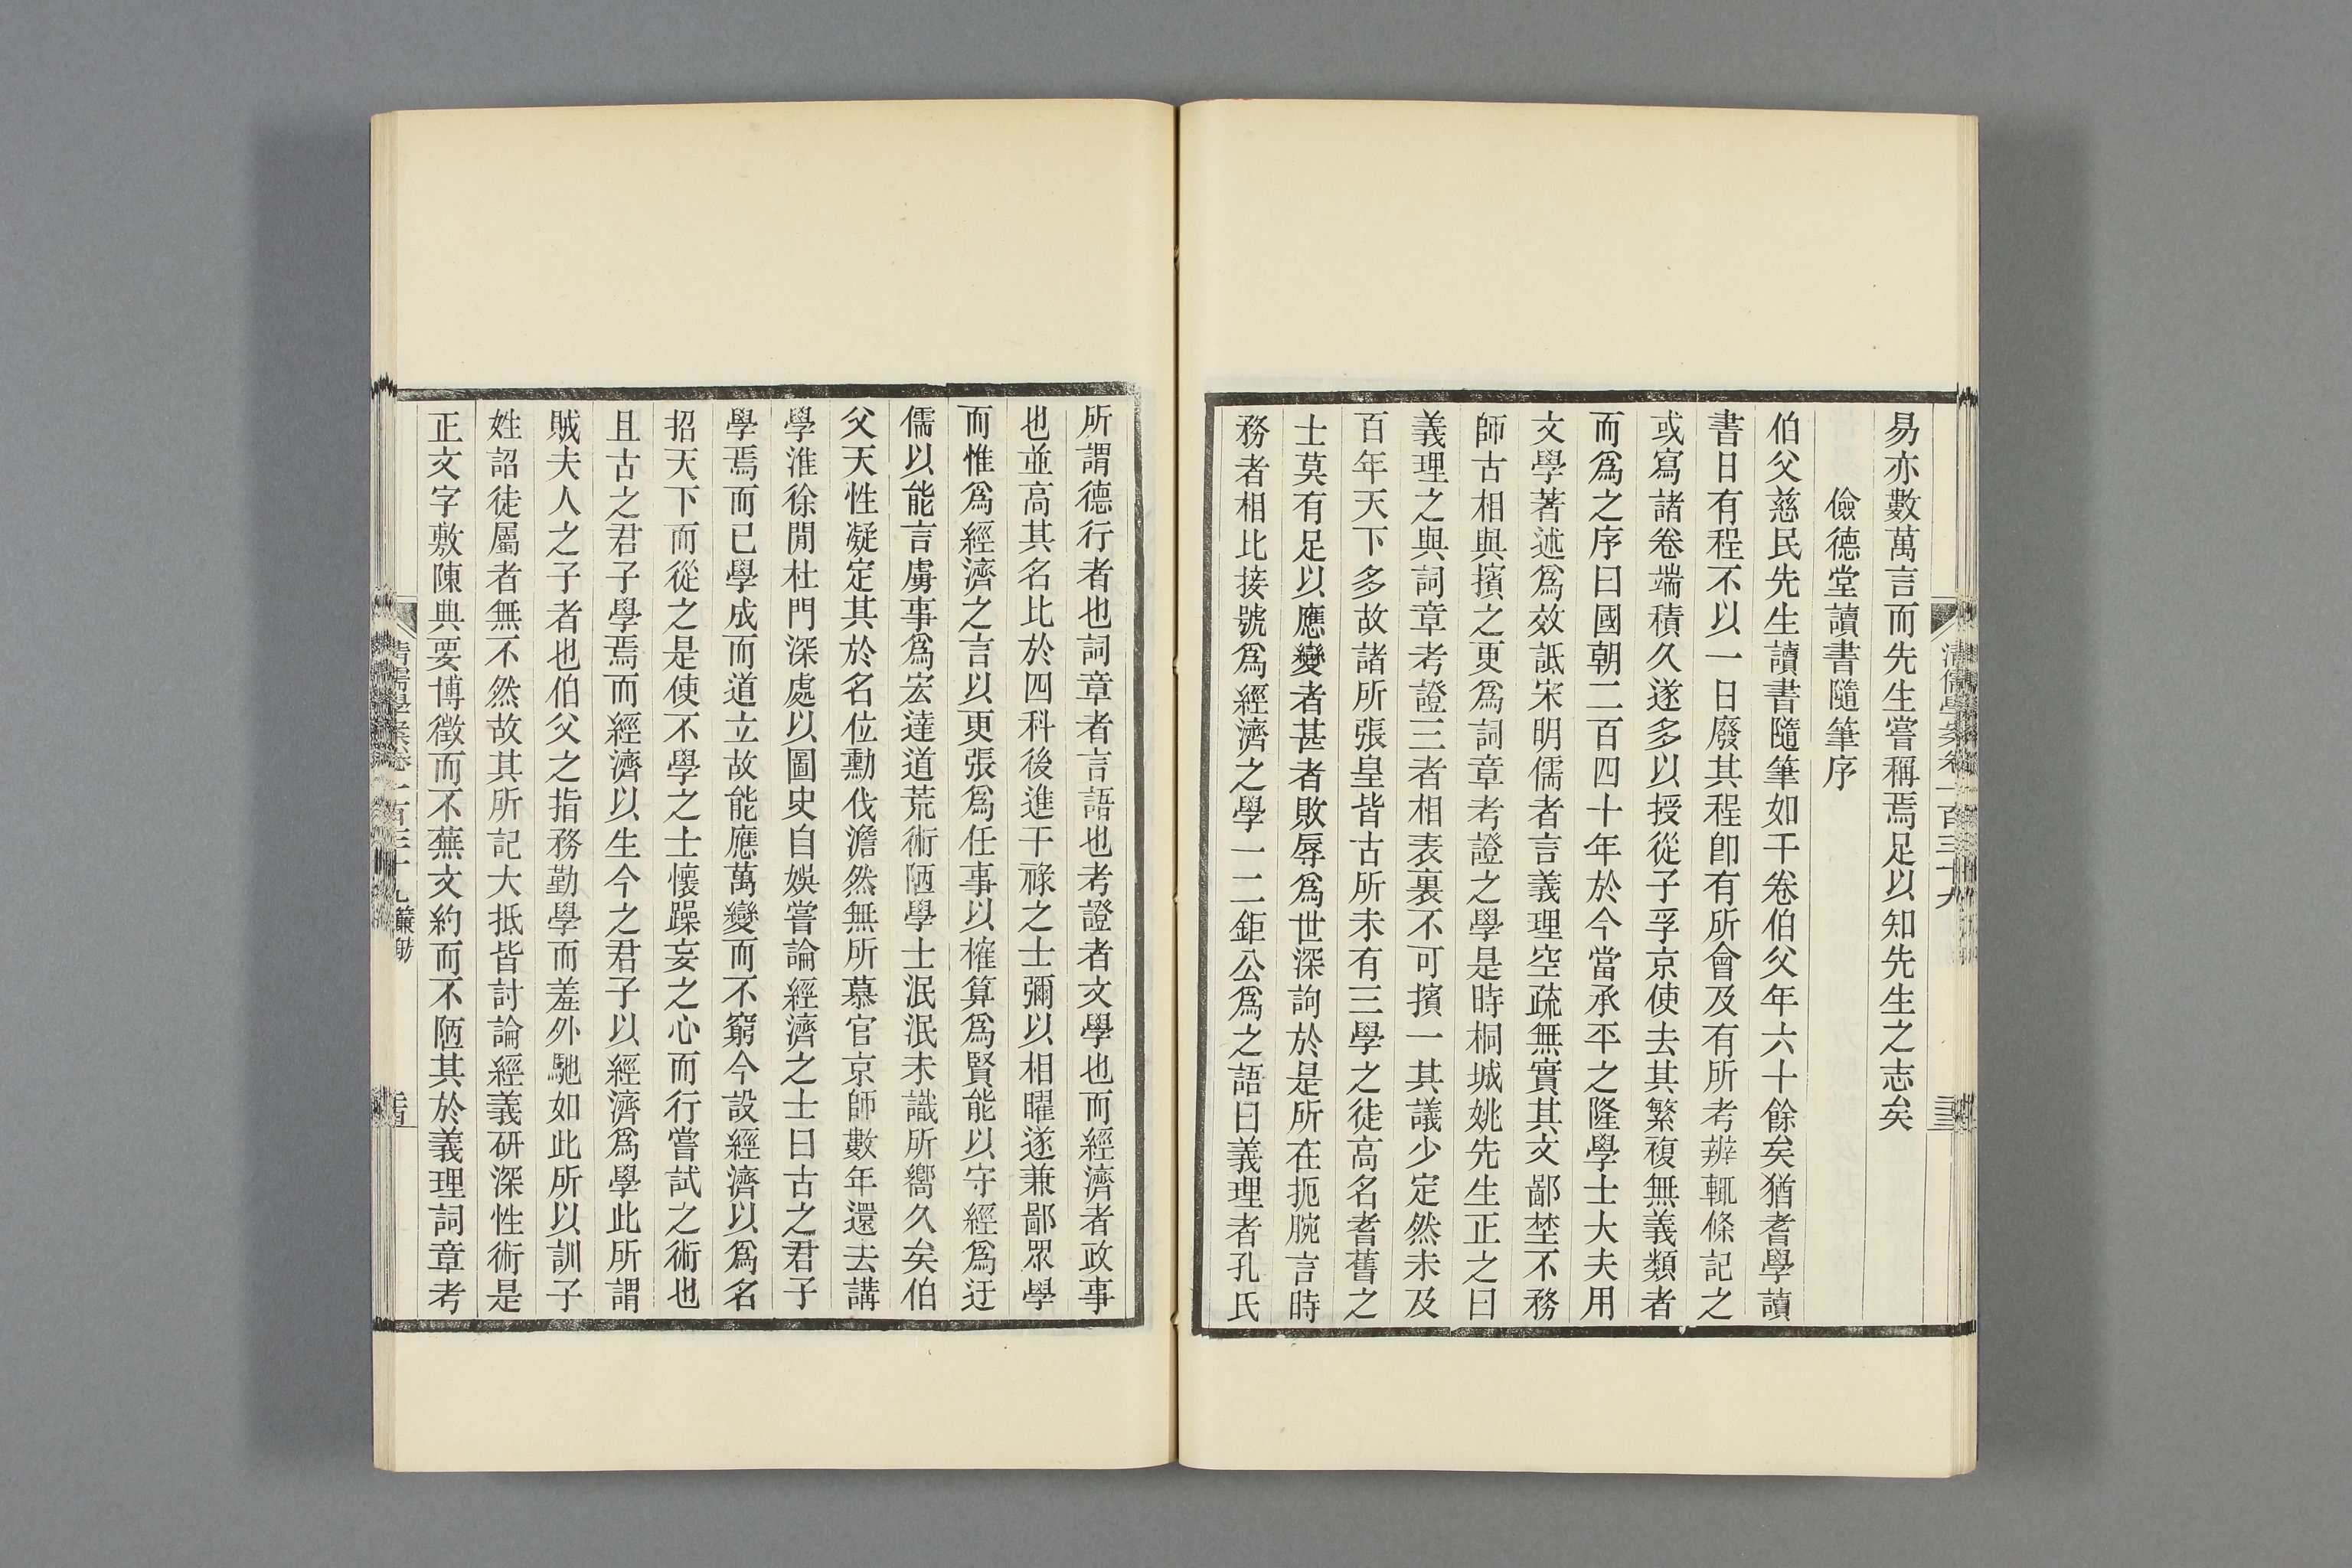 清儒學案卷一百三十九
易亦數萬言而先生嘗稱焉足以知先生之志矣
儉德堂讀書隨筆序
伯父慈民先生讀書隨筆如干卷伯父年六十餘矣猶耆學讀
書日有程不以一日廢其程卽有所會及有所考辨輒條記之
或寫諸卷端積久遂多以授從子孚京使去其繁複無義類者
而爲之序曰國朝二百四十年於今當承平之隆學士大夫用
文學著述爲效詆宋明儒者言義理空疏無實其文鄙埜不務
師古相與擯之更爲詞章考證之學是時桐城姚先生正之曰
義理之與詞章考證三者相表裏不可擯一其議少定然未及
百年天下多故諸所張皇皆古所未有三學之徒高名耆舊之
士莫有足以應變者甚者敗辱爲世深詢於是所在扼腕言時
務者相比接號爲經濟之學一二鉅公爲之語曰義理者孔氏
所謂德行者也詞章者言語也考證者文學也而經濟者政事
也並高其名比於四科後進干祿之士彌以相曜遂兼鄙眾學
而惟爲經濟之言以更張爲任事以榷算爲賢能以守經爲迂
儒以能言虜事爲宏達道荒術陋學士泯泯未識所嚮久矣伯
父天性凝定其於名位勳伐澹然無所慕官京師數年還去講
學淮徐閒杜門深處以圖史自娛嘗論經濟之士曰古之君子
學焉而已學成而道立故能應萬變而不窮今設經濟以爲名
招天下而從之是使不學之士懷躁妄之心而行嘗試之術也
且古之君子學焉而經濟以生今之君子以經濟爲學此所謂
賊夫人之子者也伯父之指務勤學而羞外馳如此所以訓子
姓詔徒屬者無不然故其所記大抵皆討論經義硏深性術是
正文字敷陳典要博徵而不蕪文約而不陋其於義理詞章考
清儒學案卷一百三十九